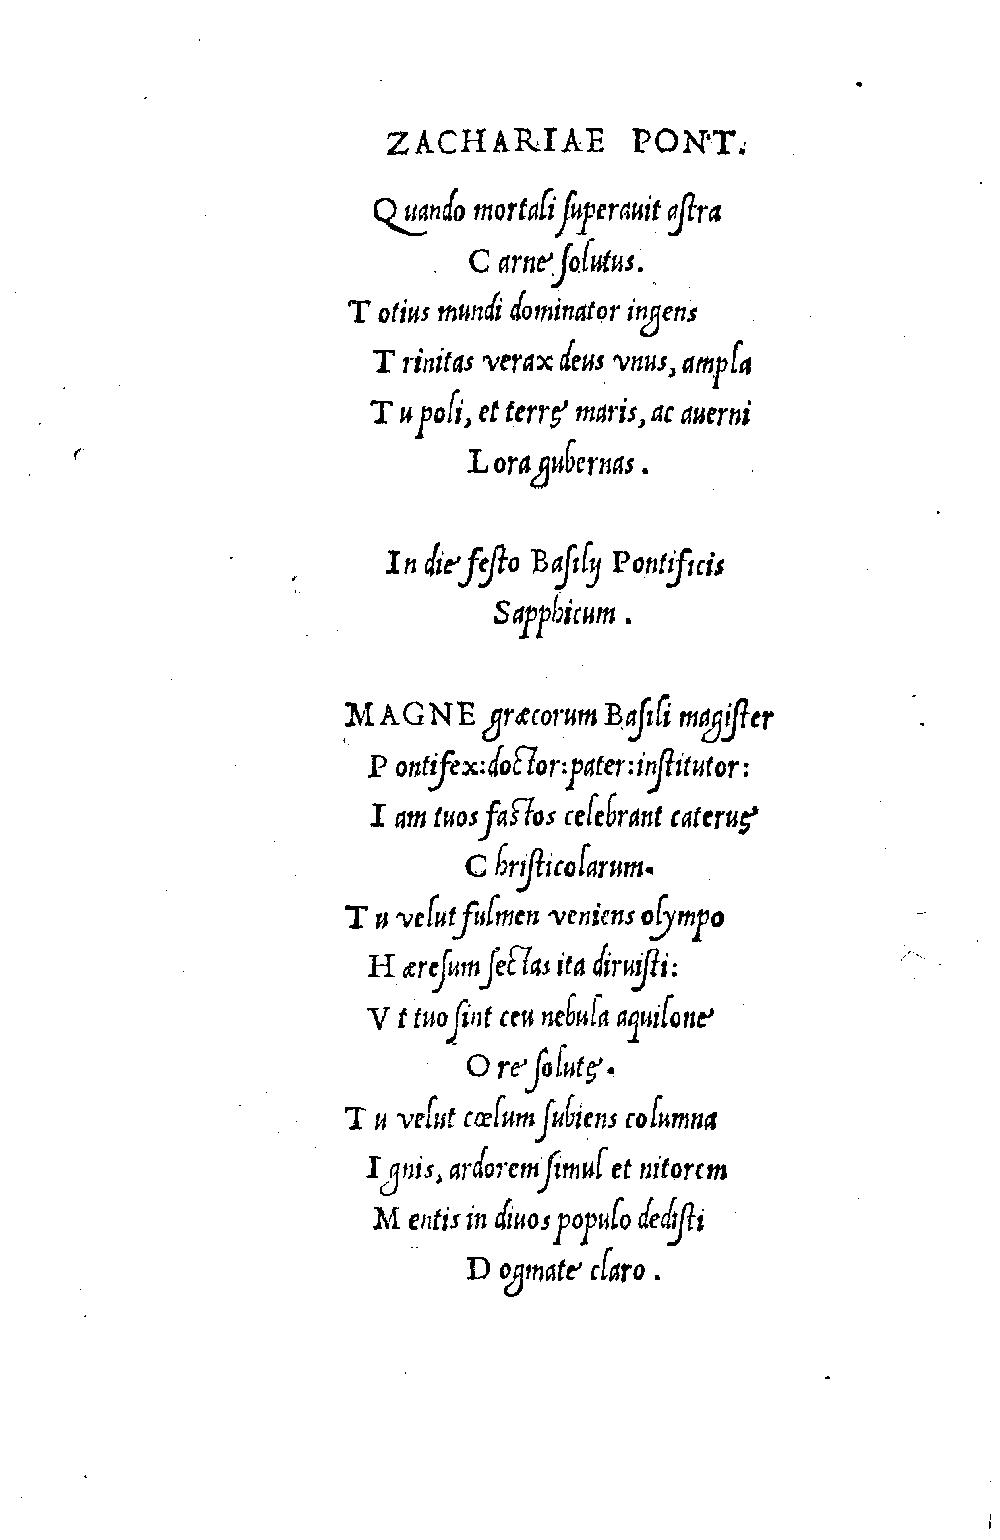 ZACHARIAE PONT.
Quando mortali ſuperauit aſtra
Carne ſolutus.
Totius mundi dominator ingens
Trinitas verax deus vnus, ampla
Tu poli, et terrę maris, ac auerni
Lora gubernas.
In die feſto Baſilij Pontificis
Sapphicum.
MAGNE græcorum Baſili magiſter
Pontifex: doctor: pater: inſtitutor:
Iam tuos faſtos celebrant cateruę
Chriſticolarum.
Tu velut fulmen veniens olympo
Hæreſum ſectas ita diruiſti:
Vt tuo ſint ceu nebula aquilone
Ore ſolutę.
Tu velut cœlum ſubiens columna
Ignis, ardorem ſimul et nitorem
Mentis in diuos populo dediſti
Dogmate claro.